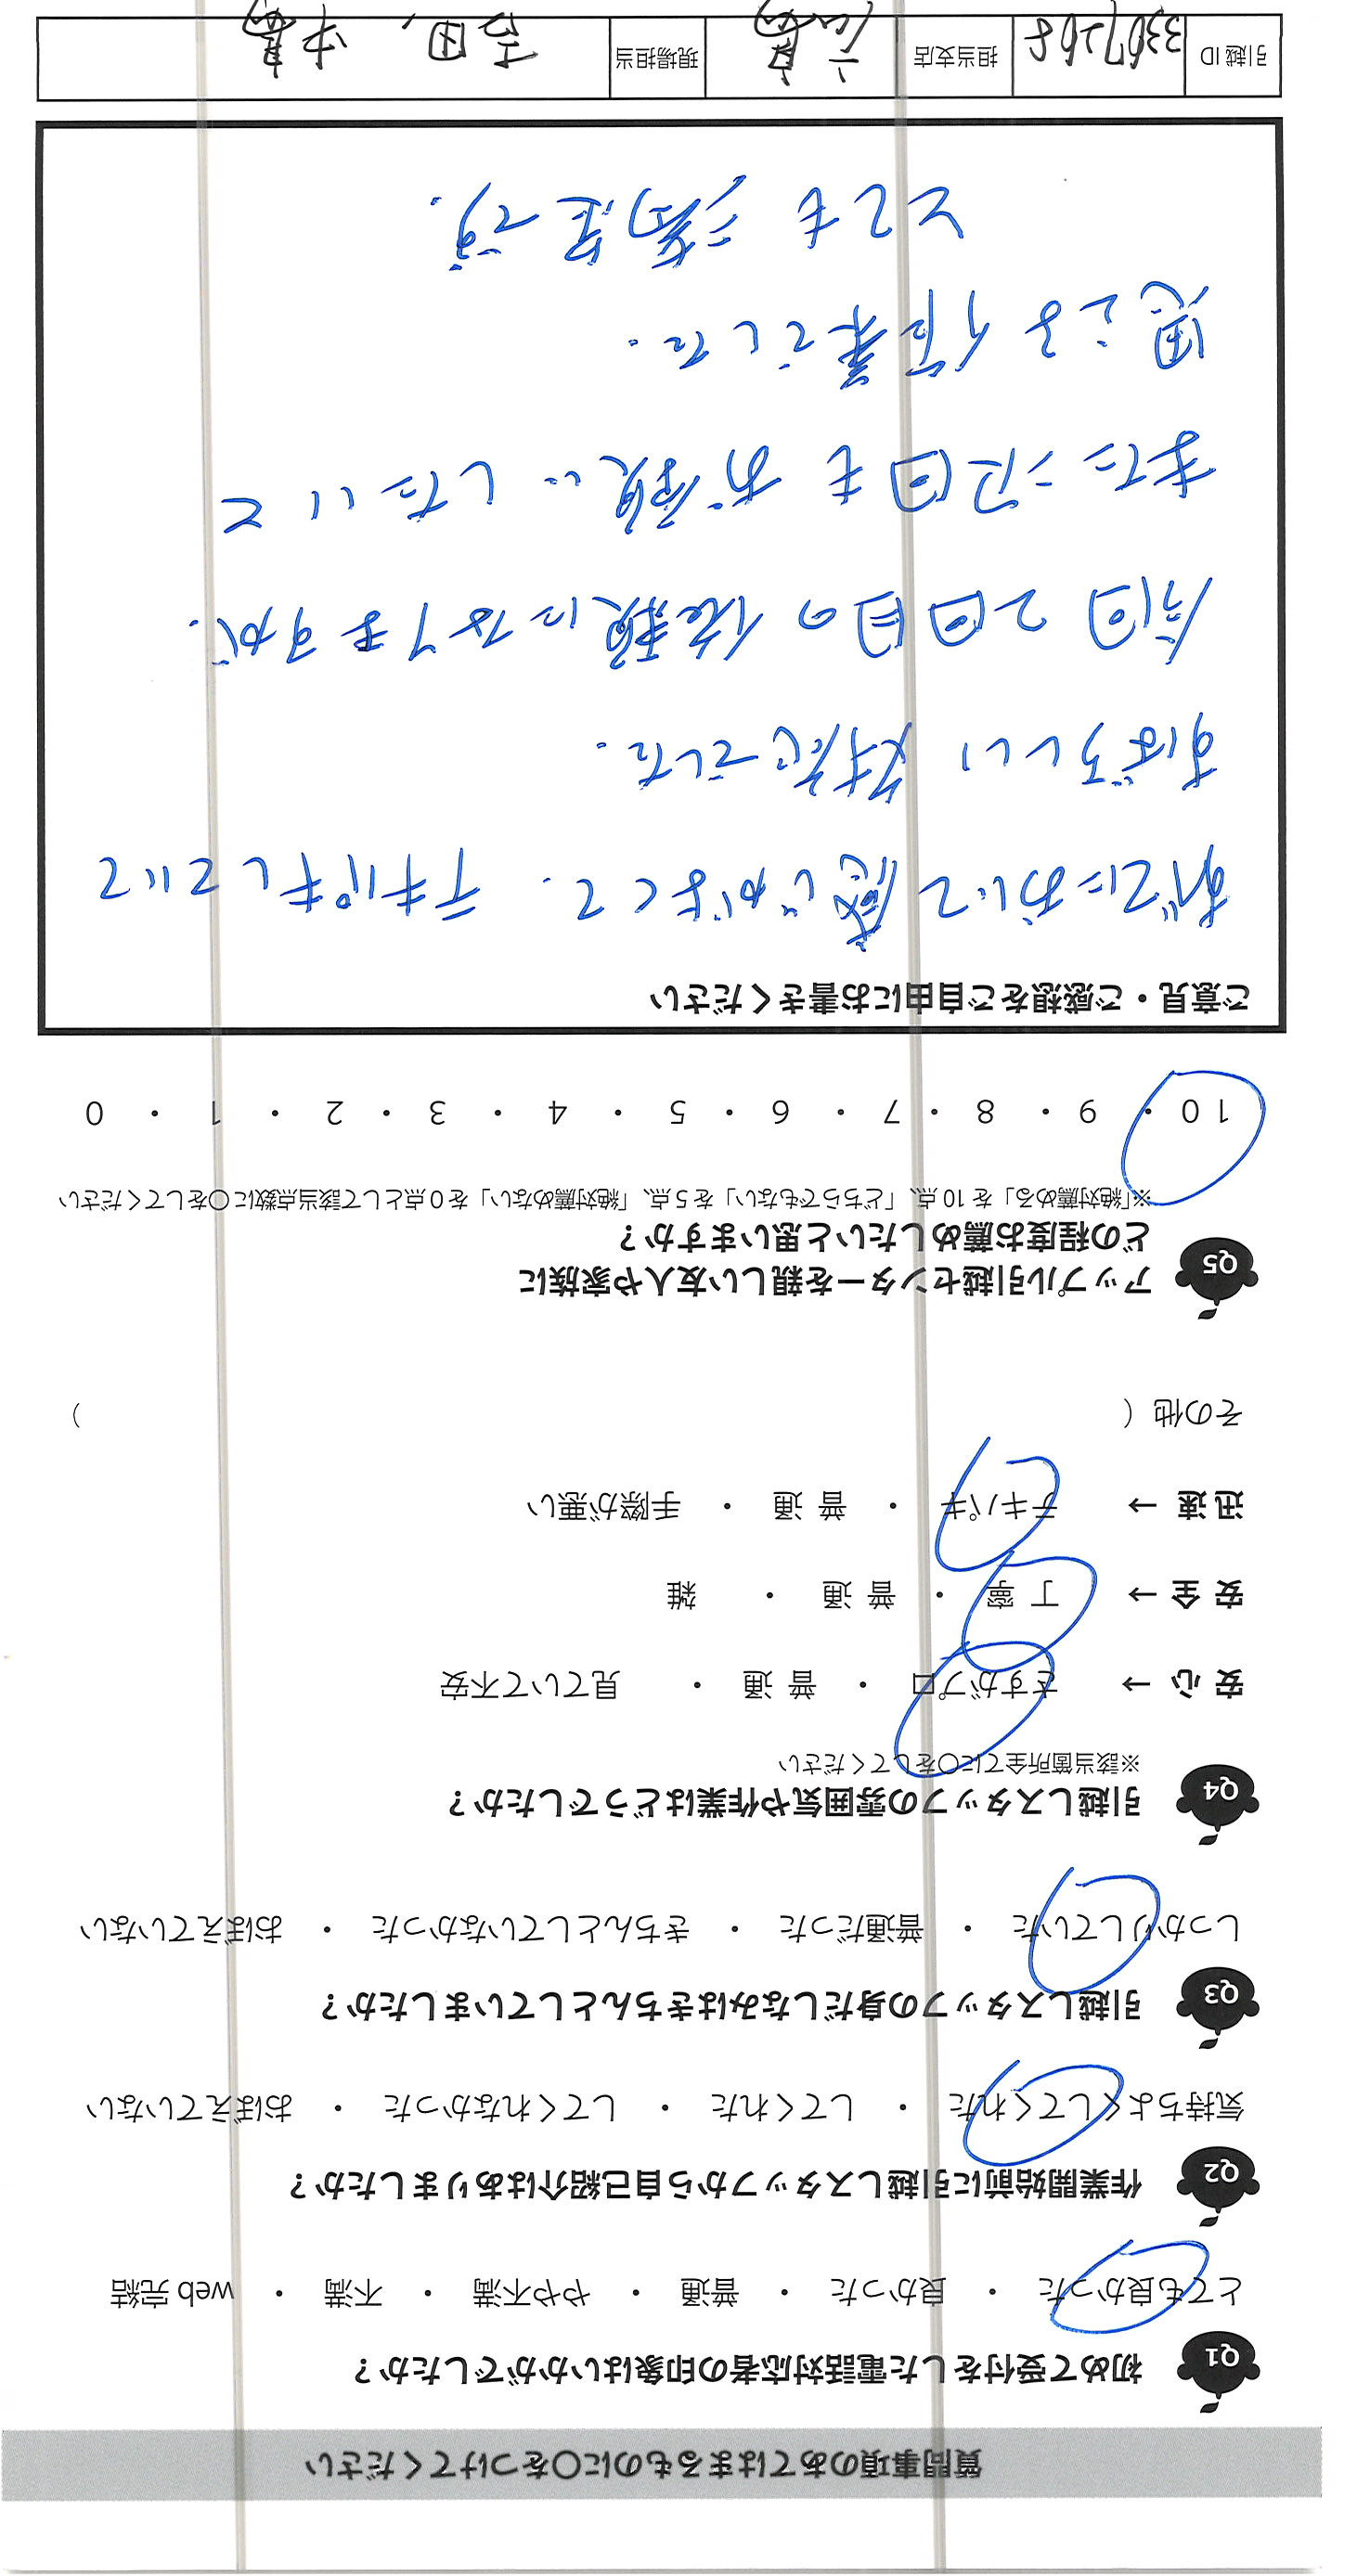 質問事項のあてはまるものに〇をつけてください
Q1 初めて受付をした電話対応者の印象はいかがでしたか？
とても良かった ・ 良かった ・ 普通 ・ やや不満 ・ 不満 ・ web 完結
Q2 作業開始前に引越しスタッフから自己紹介はありましたか？
気持ちよくしてくれた ・ してくれた ・ してくれなかった ・ おぼえていない
Q3 引越しスタッフの身だしなみはきちんとしていましたか？
しっかりしていた ・ 普通だった ・ きちんとしていなかった ・ おぼえていない
Q4 引越しスタッフの雰囲気や作業はどうでしたか？
※該当箇所全てに〇をしてください
安 心 → さすがプロ ・ 普 通 ・ 見ていて不安
安 全 → 丁 寧 ・ 普 通 ・ 雑
迅 速 → テキパキ ・ 普 通 ・ 手際が悪い
その他（ ）
Q5 アップル引越センターを親しい友人や家族に
どの程度お薦めしたいと思いますか？
※「絶対薦める」を 10 点、「どちらでもない」を 5 点、「絶対薦めない」を 0 点として該当点数に〇をしてください
10 ・ 9 ・ 8 ・ 7 ・ 6 ・ 5 ・ 4 ・ 3 ・ 2 ・ 1 ・ 0
ご意見・ご感想をご自由にお書きください
すべてにおいて感じがよくて、テキパキしていて
すばらしい対応でした。
今回2回目の依頼になりますが、
また次回もお願いしたいと
思える作業でした。
とても満足です。
引越 ID 担当支店 現場担当 吉田、中島